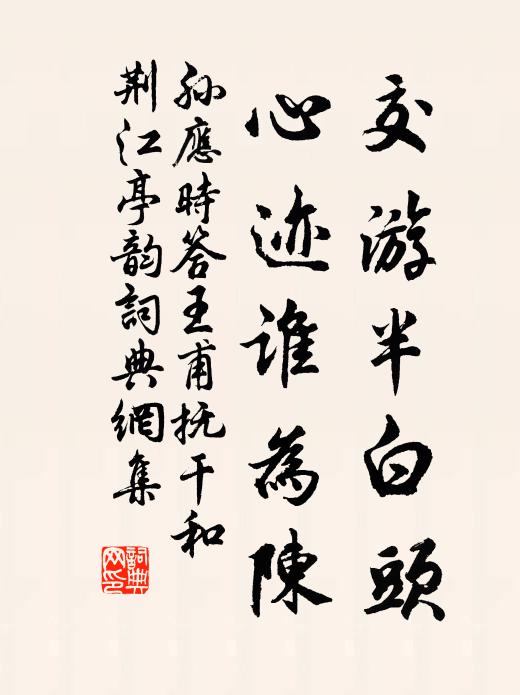 交游半白頭
心迹誰為陳
孫應時答王甫抚干和
荆江亭韵詞典網集
詞典
网印